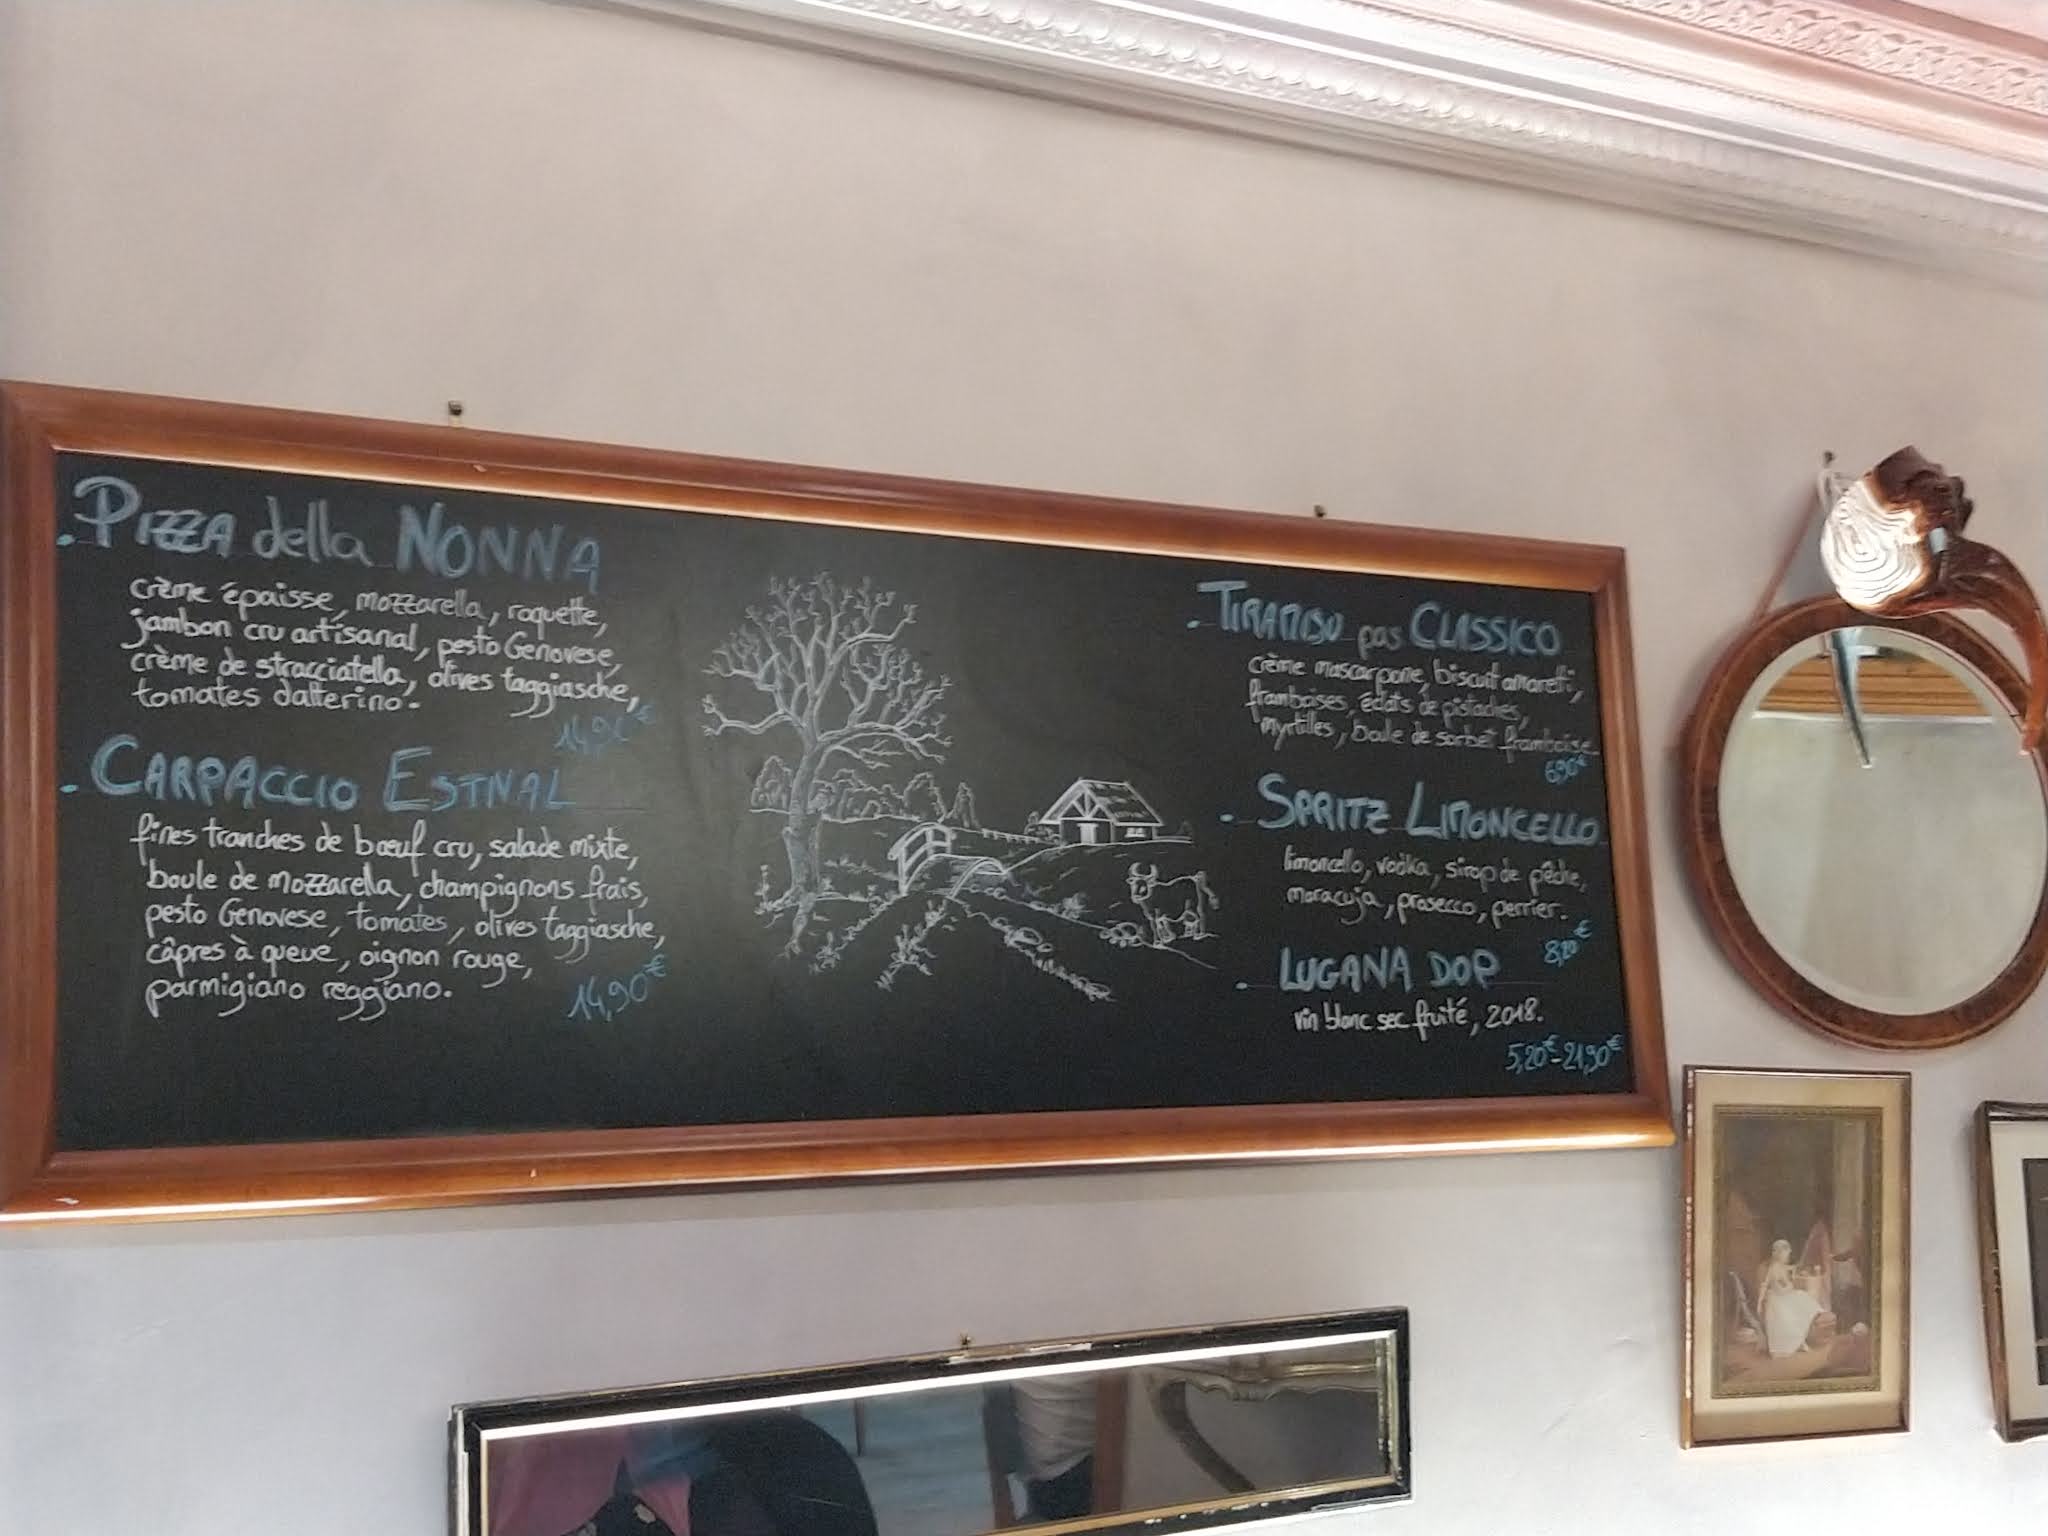 . PIZZA della NONNA
crème épaisse, mozzarella, roquette,
jambon cru artisanal, pesto Genovese,
crème de stracciatella, olives taggiasche,
tomates datterino.
14,90€
. CARPACCIO ESTIVAL
fines tranches de bœuf cru, salade mixte,
boule de mozzarella, champignons frais,
pesto Genovese, tomates, olives taggiasche,
câpres à queue, oignon rouge,
parmigiano reggiano.
14,90€
. TIRAMISU pas CLASSICO
crème mascarpone, biscuit amaretti,
framboises, éclats de pistaches,
myrtilles, boule de sorbet framboise.
6,90€
. SPRITZ LIMONCELLO
limoncello, vodka, sirop de pêche,
maracuja, prosecco, perrier.
8,20€
. LUGANA DOP
vin blanc sec fruité, 2018.
5,20€-21,90€